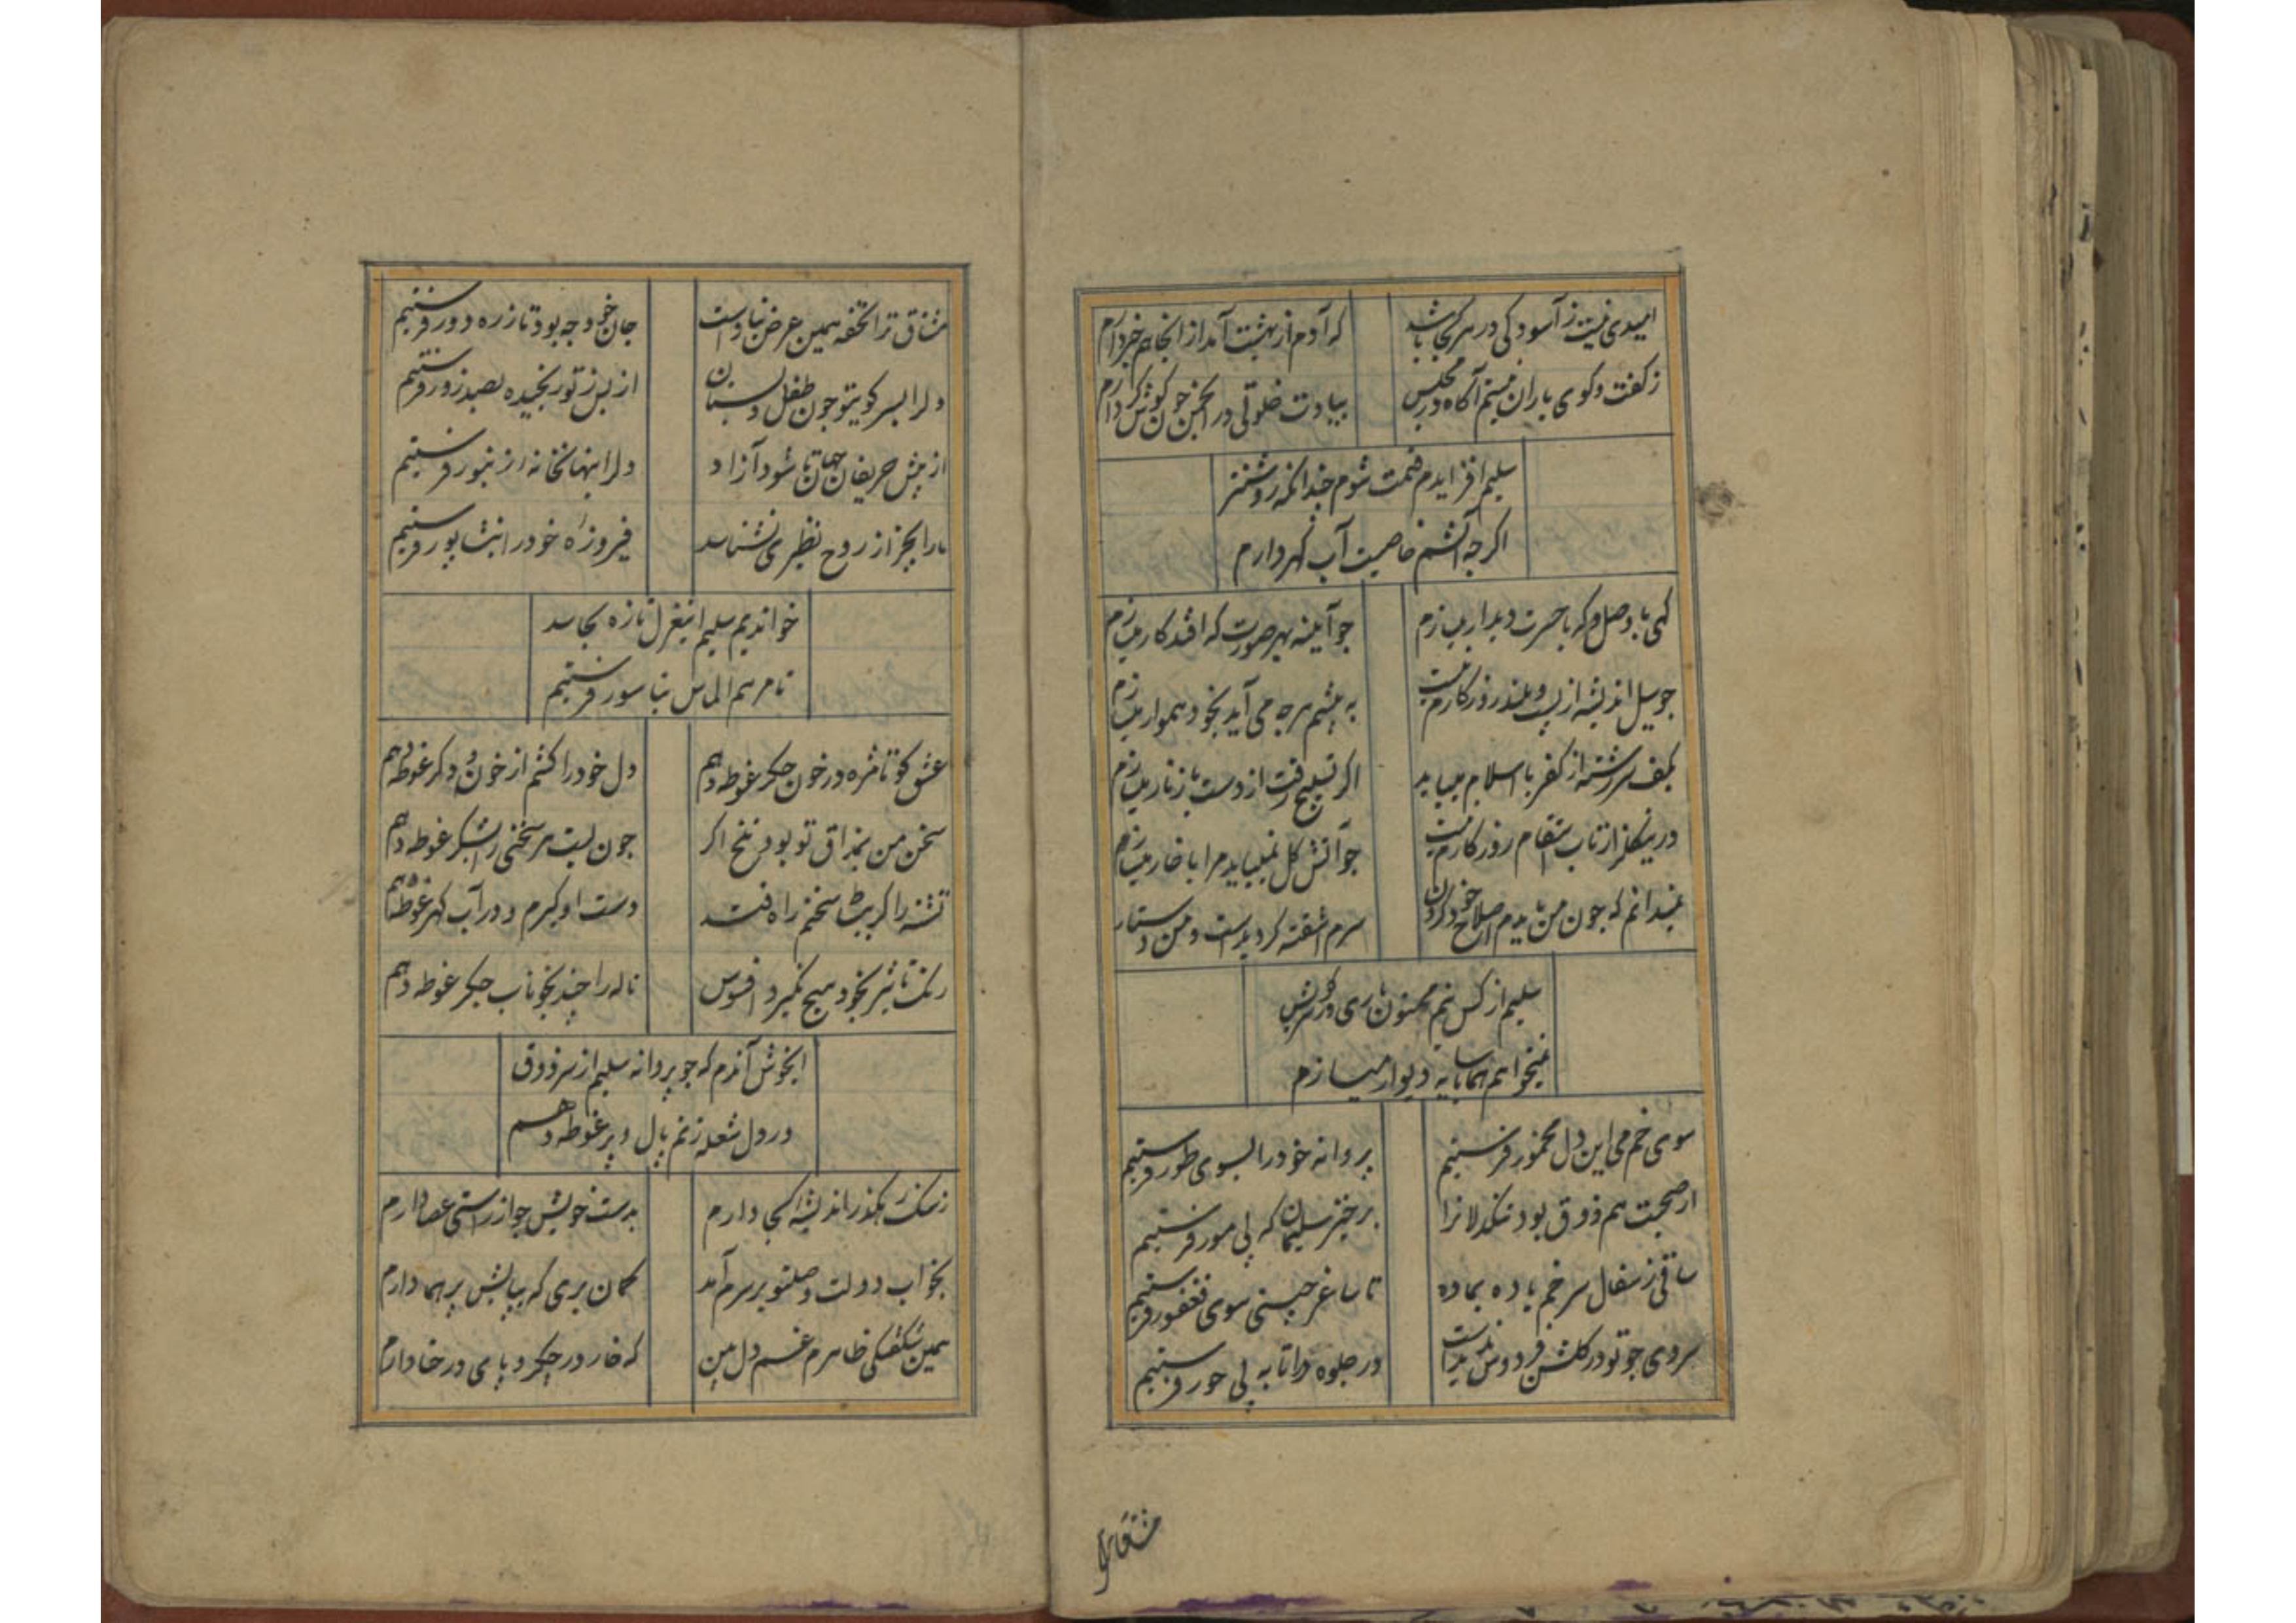 امیدی نیست ز آسودکی در هر کجا باشد
که آدم از بهشت آمد از آنجا هم خبر دارم
ز کفت و کوی یاران نیستم آکاه در مجلس
بیادت خلوتی در انجمن خوش کرده دارم
سلیم افزاید م قیمت شوم چندانکه روشنتر
اکر چه آتشم خاصیت آب کهر دارم
کهی با وصل و که با حسرت دیدار میسازم
جو آیینه بهر صورت که افتد کار میسازم
جو سیل اندیشه از پست و بلند روزکارم نیست
به پیشم هر چه می آید بخود هموار میسازم
بکف سررشته از کفر یا اسلام میباید
اکر تسبیح رفت از دست با زنار میسازم
درین کلزار تاب انتقام روزکارم نیست
جو آتش کل نمیباید مرا با خار میسازم
نمیدانم که جون من بایدم اصلاح خود کردن
سرم آشفته کردیدست و من دستار
سلیم از کس نیم ممنون یاری در سر کویش
نمیخواهم هما با سایه دیوار میسازم
سوی خم می این دل مخمور فرستیم
پروانه خود را بسوی طور فرستیم
از صحبت هم ذوق بود تنکدلانرا
برخیز سلیمان که پی مور فرستیم
ساقی ز سفال سر خم باده بما ده
تا ساغر چینی سوی فغفور فرستیم
سروی جو تو در کلشن فردوس ندیدست
در جلوه درا تا به پی حور فرستیم
مشتاق ترا
مشتاق ترا تحفه همین عرض نیاز است
جان خود چه بود تا ز ره دور فرستیم
دل را بسر کوی تو جون طفل دبستان
از بس ز تو رنجیده بصد زور فرستیم
از پیش حریفان جهان تا شود آزاد
دل را بنهانخانه زنبور فرستیم
ما را بجز از روح نظیری نشناسد
فیروزه خود را بنشاپور فرستیم
خواندیم سلیم این غزل تازه بحاسد
تا مرهم الماس بناسور فرستیم
عشق کو تا مژه در خون جکر غوطه دهم
دل خود را کشم از خون و دکر غوطه دهم
سخن من بمذاق تو بود تلخ اکر
جون لبت هر سخنی را بشکر غوطه دهم
تشنه را کر به بیت سخنم راه فتد
دست او کیرم و در آب کهر غوطه دهم
رنک تاثیر بخود هیچ نکیرد افسوس
ناله را چند بخوناب جکر غوطه دهم
ایخوش آندم که جو پروانه سلیم از سر ذوق
در دل شعله زنم بال و پر غوطه دهم
ز سنک رهکذر اندیشه کجا دارم
بدست خویش جو از راستی عصا دارم
بخواب دولت وصل تو بر سرم آمد
کمان بری که ببالش پر هما دارم
همین شکفتکی ظاهرم غم دل بین
که خار در جکر و پای در حنا دارم